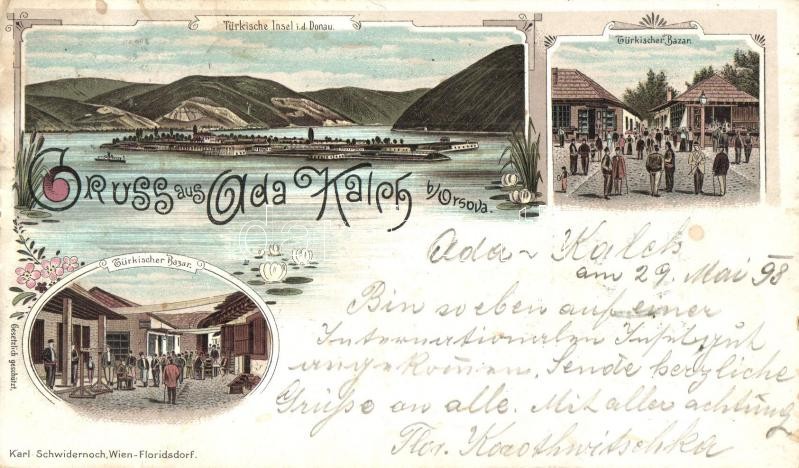 Türkische Insel i.d. Donau.
Türkischer Bazar.
Gruss aus Ada Kaleh b/Orsova.
Türkischer Bazar.
Ada-Kaleh
am 29. Mai 98
Bin soeben auf einer
Internationalen Insel gut
angekommen. Sende herzliche
Grüße an alle. Mit aller achtung
Gesetzlich geschützt.
Karl Schwidernoch, Wien-Floridsdorf.